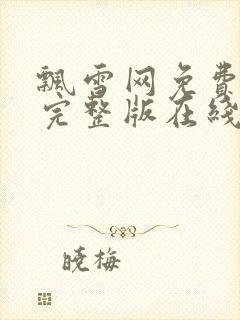 飘雪网免费
完整版在线
晓梅